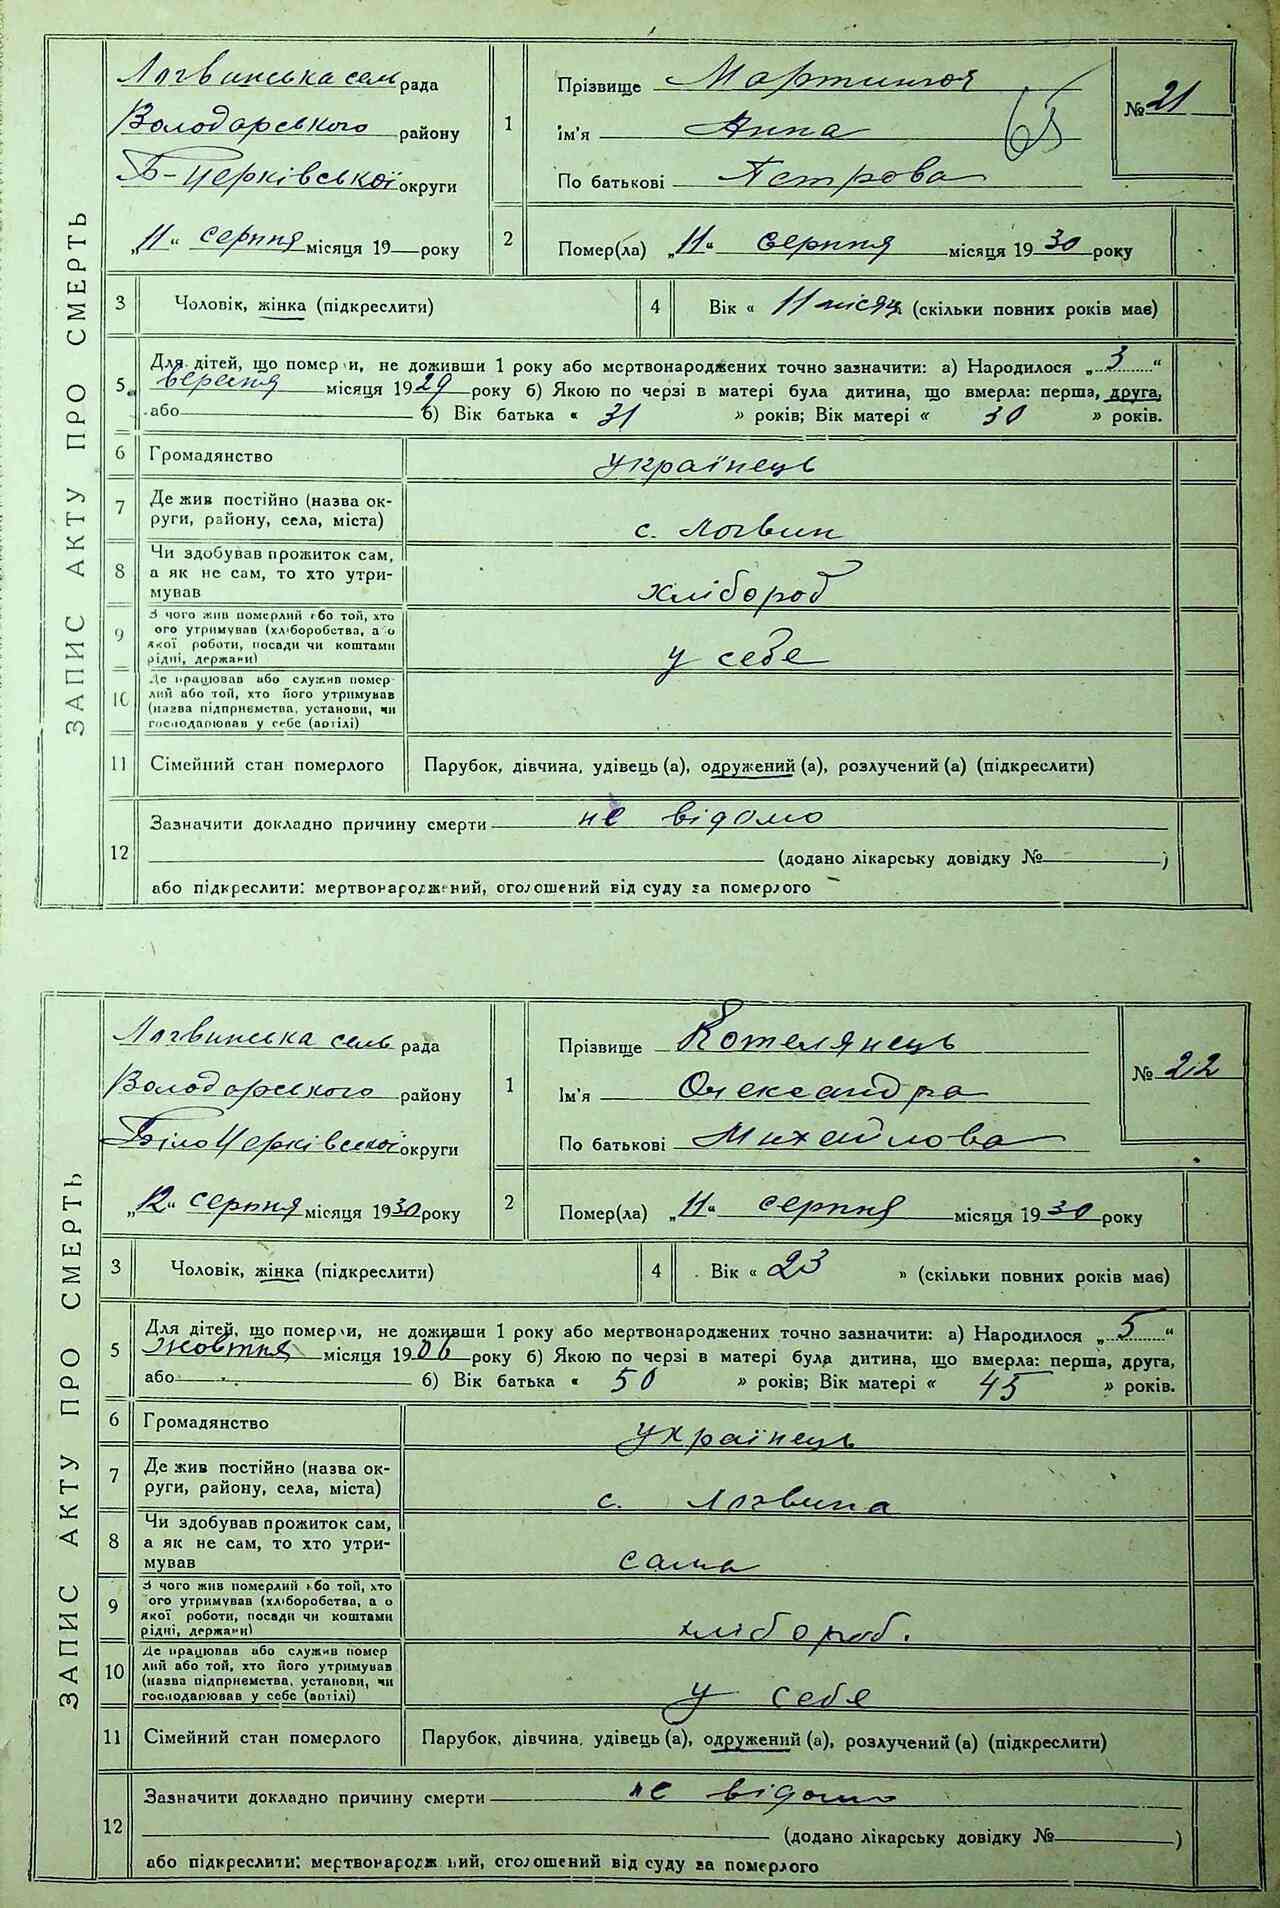 ЗАПИС АКТУ ПРО СМЕРТЬ
Логвинська сель рада
Володарського району
Б-Церківської округи
„11“ серпня місяця 19 року
1
Прізвище
Ім'я Анна
По батькові Петрова
65
№ 21
2 Помер(ла) „11“ серпня місяця 1930 року
3 Чоловік, жінка (підкреслити)
4 Вік « 11 місяц (скільки повних років має)
5 Для дітей, що померли, не доживши 1 року або мертвонароджених точно зазначити: а) Народилося „3“
вересня місяця 1929 року б) Якою по черзі в матері була дитина, що вмерла: перша, друга,
або б) Вік батька « 31 » років; Вік матері « 30 » років.
6 Громадянство українець
7 Де жив постійно (назва ок-
руги, району, села, міста) с. Логвин
8 Чи здобував прожиток сам,
а як не сам, то хто утри-
мував хлібороб
9 З чого жив померлий або той, хто
його утримував (хліборобства, а о
якої роботи, посади чи коштами
рідні, держави) у себе
10 Де працював або служив помер
лий або той, хто його утримував
(назва підприємства, установи, чи
господарював у себе (артілі)
11 Сімейний стан померлого Парубок, дівчина, удівець (а), одружений (а), розлучений (а) (підкреслити)
12 Зазначити докладно причину смерти не відомо
(додано лікарську довідку № )
або підкреслити: мертвонароджений, оголошений від суду за померлого
ЗАПИС АКТУ ПРО СМЕРТЬ
Логвинська сель рада
Володарського району
БілоЦерківської округи
„12“ серпня місяця 1930 року
1
Прізвище Котелянець
Ім'я Олександра
По батькові Михайлова
№ 22
2 Помер(ла) „11“ серпня місяця 1930 року
3 Чоловік, жінка (підкреслити)
4 Вік « 23 » (скільки повних років має)
5 Для дітей, що померли, не доживши 1 року або мертвонароджених точно зазначити: а) Народилося „5“
Жовтня місяця 1906 року б) Якою по черзі в матері була дитина, що вмерла: перша, друга,
або б) Вік батька « 50 » років; Вік матері « 45 » років.
6 Громадянство українець
7 Де жив постійно (назва ок-
руги, району, села, міста) с. Логвина
8 Чи здобував прожиток сам,
а як не сам, то хто утри-
мував сама
9 З чого жив померлий або той, хто
його утримував (хліборобства, а о
якої роботи, посади чи коштами
рідні, держави) хлібороб.
10 Де працював або служив помер
лий або той, хто його утримував
(назва підприємства, установи, чи
господарював у себе (артілі) у себе
11 Сімейний стан померлого Парубок, дівчина, удівець (а), одружений (а), розлучений (а) (підкреслити)
12 Зазначити докладно причину смерти не відомо
(додано лікарську довідку № )
або підкреслити: мертвонароджений, оголошений від суду за померлого